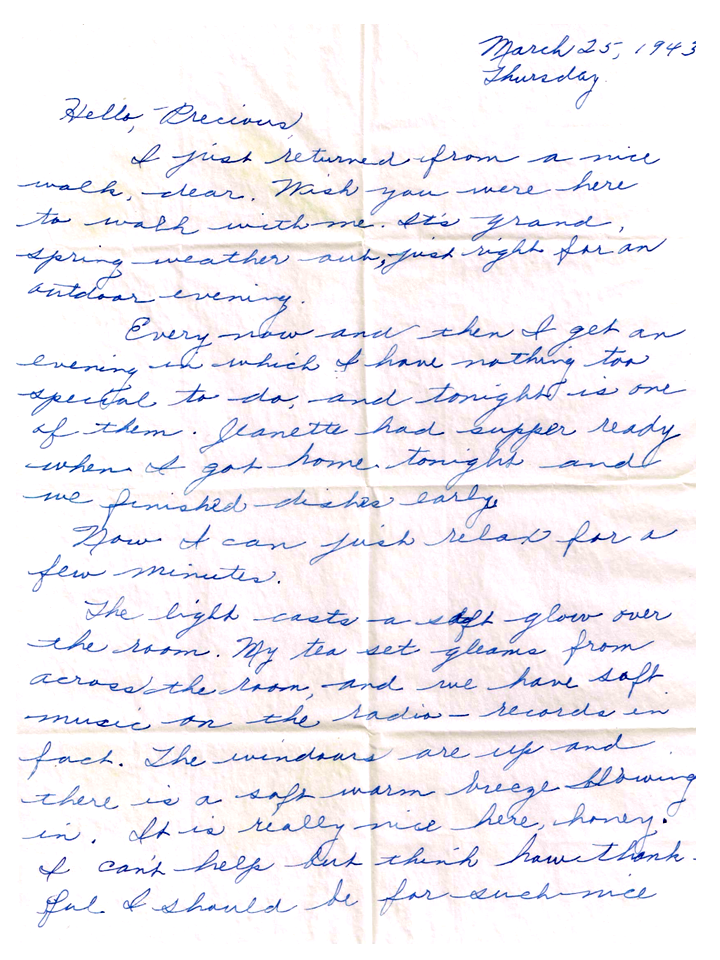 March 25, 1943
Thursday.
Hello, Precious,
I just returned from a nice
walk, dear. Wish you were here
to walk with me. It's grand,
spring weather out, just right for an
outdoor evening.
Every now and then I get an
evening in which I have nothing too
special to do, and tonight is one
of them. Jeanette had supper ready
when I got home tonight and
we finished dishes early.
Now I can just relax for a
few minutes.
The light casts a soft glow over
the room. My tea set gleams from
across the room, and we have soft
music on the radio – records in
fact. The windows are up and
there is a soft warm breeze blowing
in. It is really nice here, honey.
I can't help but think how thank-
ful I should be for such nice